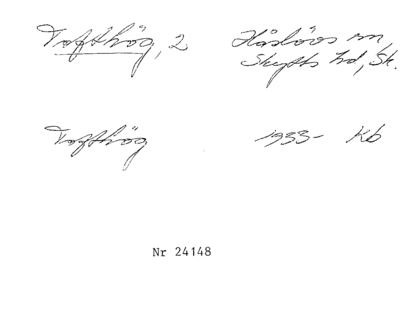 Tofthög, 2 Håslövs sn,
Skytts hd, Sk.
Tofthög 1933- Kb
Nr 24148